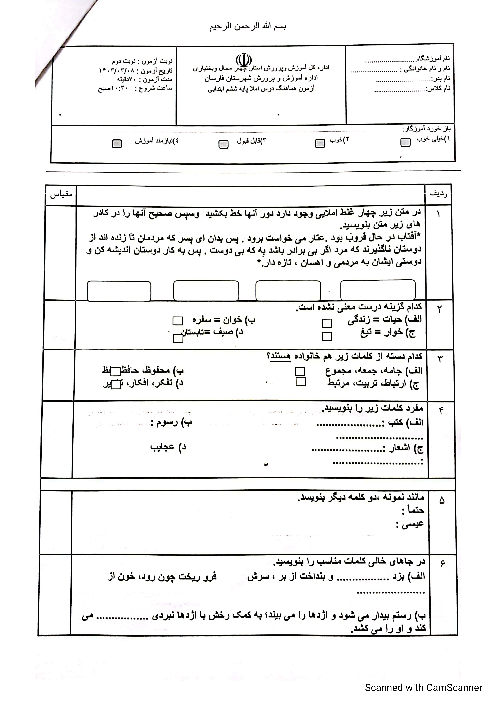 بسم الله الرحمن الرحیم
نام آموزشگاه:....................
نام و نام خانوادگی : ....................
نام پدر:....................
نام کلاس:....................
اداره کل آموزش وپرورش استان چهار محال وبختیاری
اداره آموزش و پرورش شهرستان فارسان
آزمون هماهنگ درس املا پایه ششم ابتدایی
نوبت آزمون : نوبت دوم
تاریخ آزمون : ۱۴۰۳/۰۳/۰۸
مدت آزمون : ۷۰دقیقه
ساعت شروع : ۱۰:۳۰صبح
باز خورد آموزگار:
۱)خیلی خوب ۲)خوب ۳)قابل قبول ۴)نیازمند آموزش
ردیف
مقیاس
۱
در متن زیر چهار غلط املایی وجود دارد دور آنها خط بکشید وسپس صحیح آنها را در کادر
های زیر متن بنویسید.
*آفتاب در حال قروب بود .عتار می خواست برود . پس بدان ای پسر که مردمان تا زنده اند از
دوستان ناگذیرند که مرد اگر بی برادر باشد به که بی دوست . پس به کار دوستان اندیشه کن و
دوستی ایشان به مردمی و اهسان ، تازه دار.*
۲
کدام گزینه درست معنی نشده است.
الف) حیات = زندگی ب) خوان = سفره
ج) خوار = تیغ د) صیف =تابستان
۳
کدام دسته از کلمات زیر هم خانواده هستند؟
الف) جامه، جمعه، مجموع ب) محفوظ، حافظ،
ج) ارتباط، تربیت، مرتبط د) تفکر، افکار،
۴
مفرد کلمات زیر را بنویسید.
الف) کتب :.................... ب) رسوم :
....................
ج) اشعار :.................... د) عجایب
:....................
۵
مانند نمونه ،دو کلمه دیگر بنویسد.
حتماً :
عیسی :
۶
در جاهای خالی کلمات مناسب را بنویسید.
الف) بزد ................ و بنداخت از بر ، سرش فرو ریخت چون رود، خون از
....................
ب) رستم بیدار می شود و اژدها را می بیند؟ به کمک رخش با اژدها نبردی ................ می
کند و او را می کشد.
Scanned with CamScanner